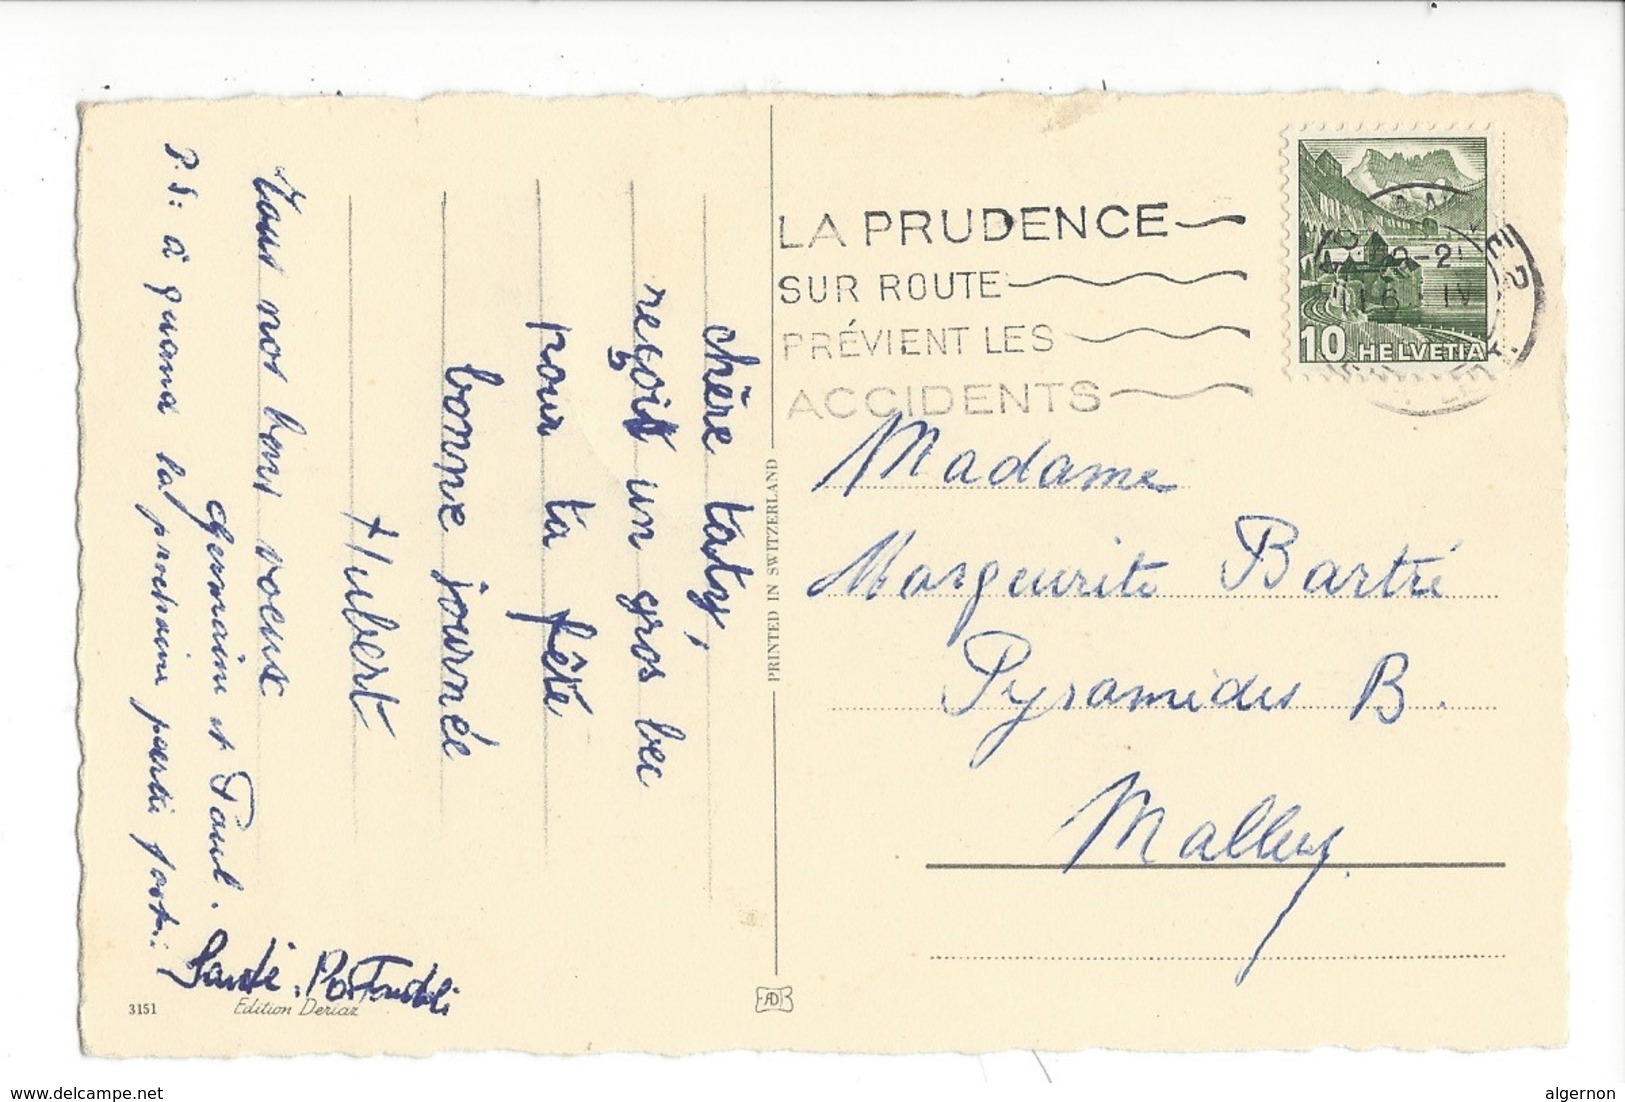 chère taty,
reçoit un gros bec
pour ta fête
bonne journée
Hubert
Tous nos bons voeux
Germaine et Paul.
P.S: à quand la prochaine partie
Santé.
LA PRUDENCE
SUR ROUTE
PRÉVIENT LES
ACCIDENTS
10 HELVETIA
Madame
Marguerite Bartré
Pyramides B.
Malley
PRINTED IN SWITZERLAND
3151
Edition Deriaz
delcampe.net
algernon